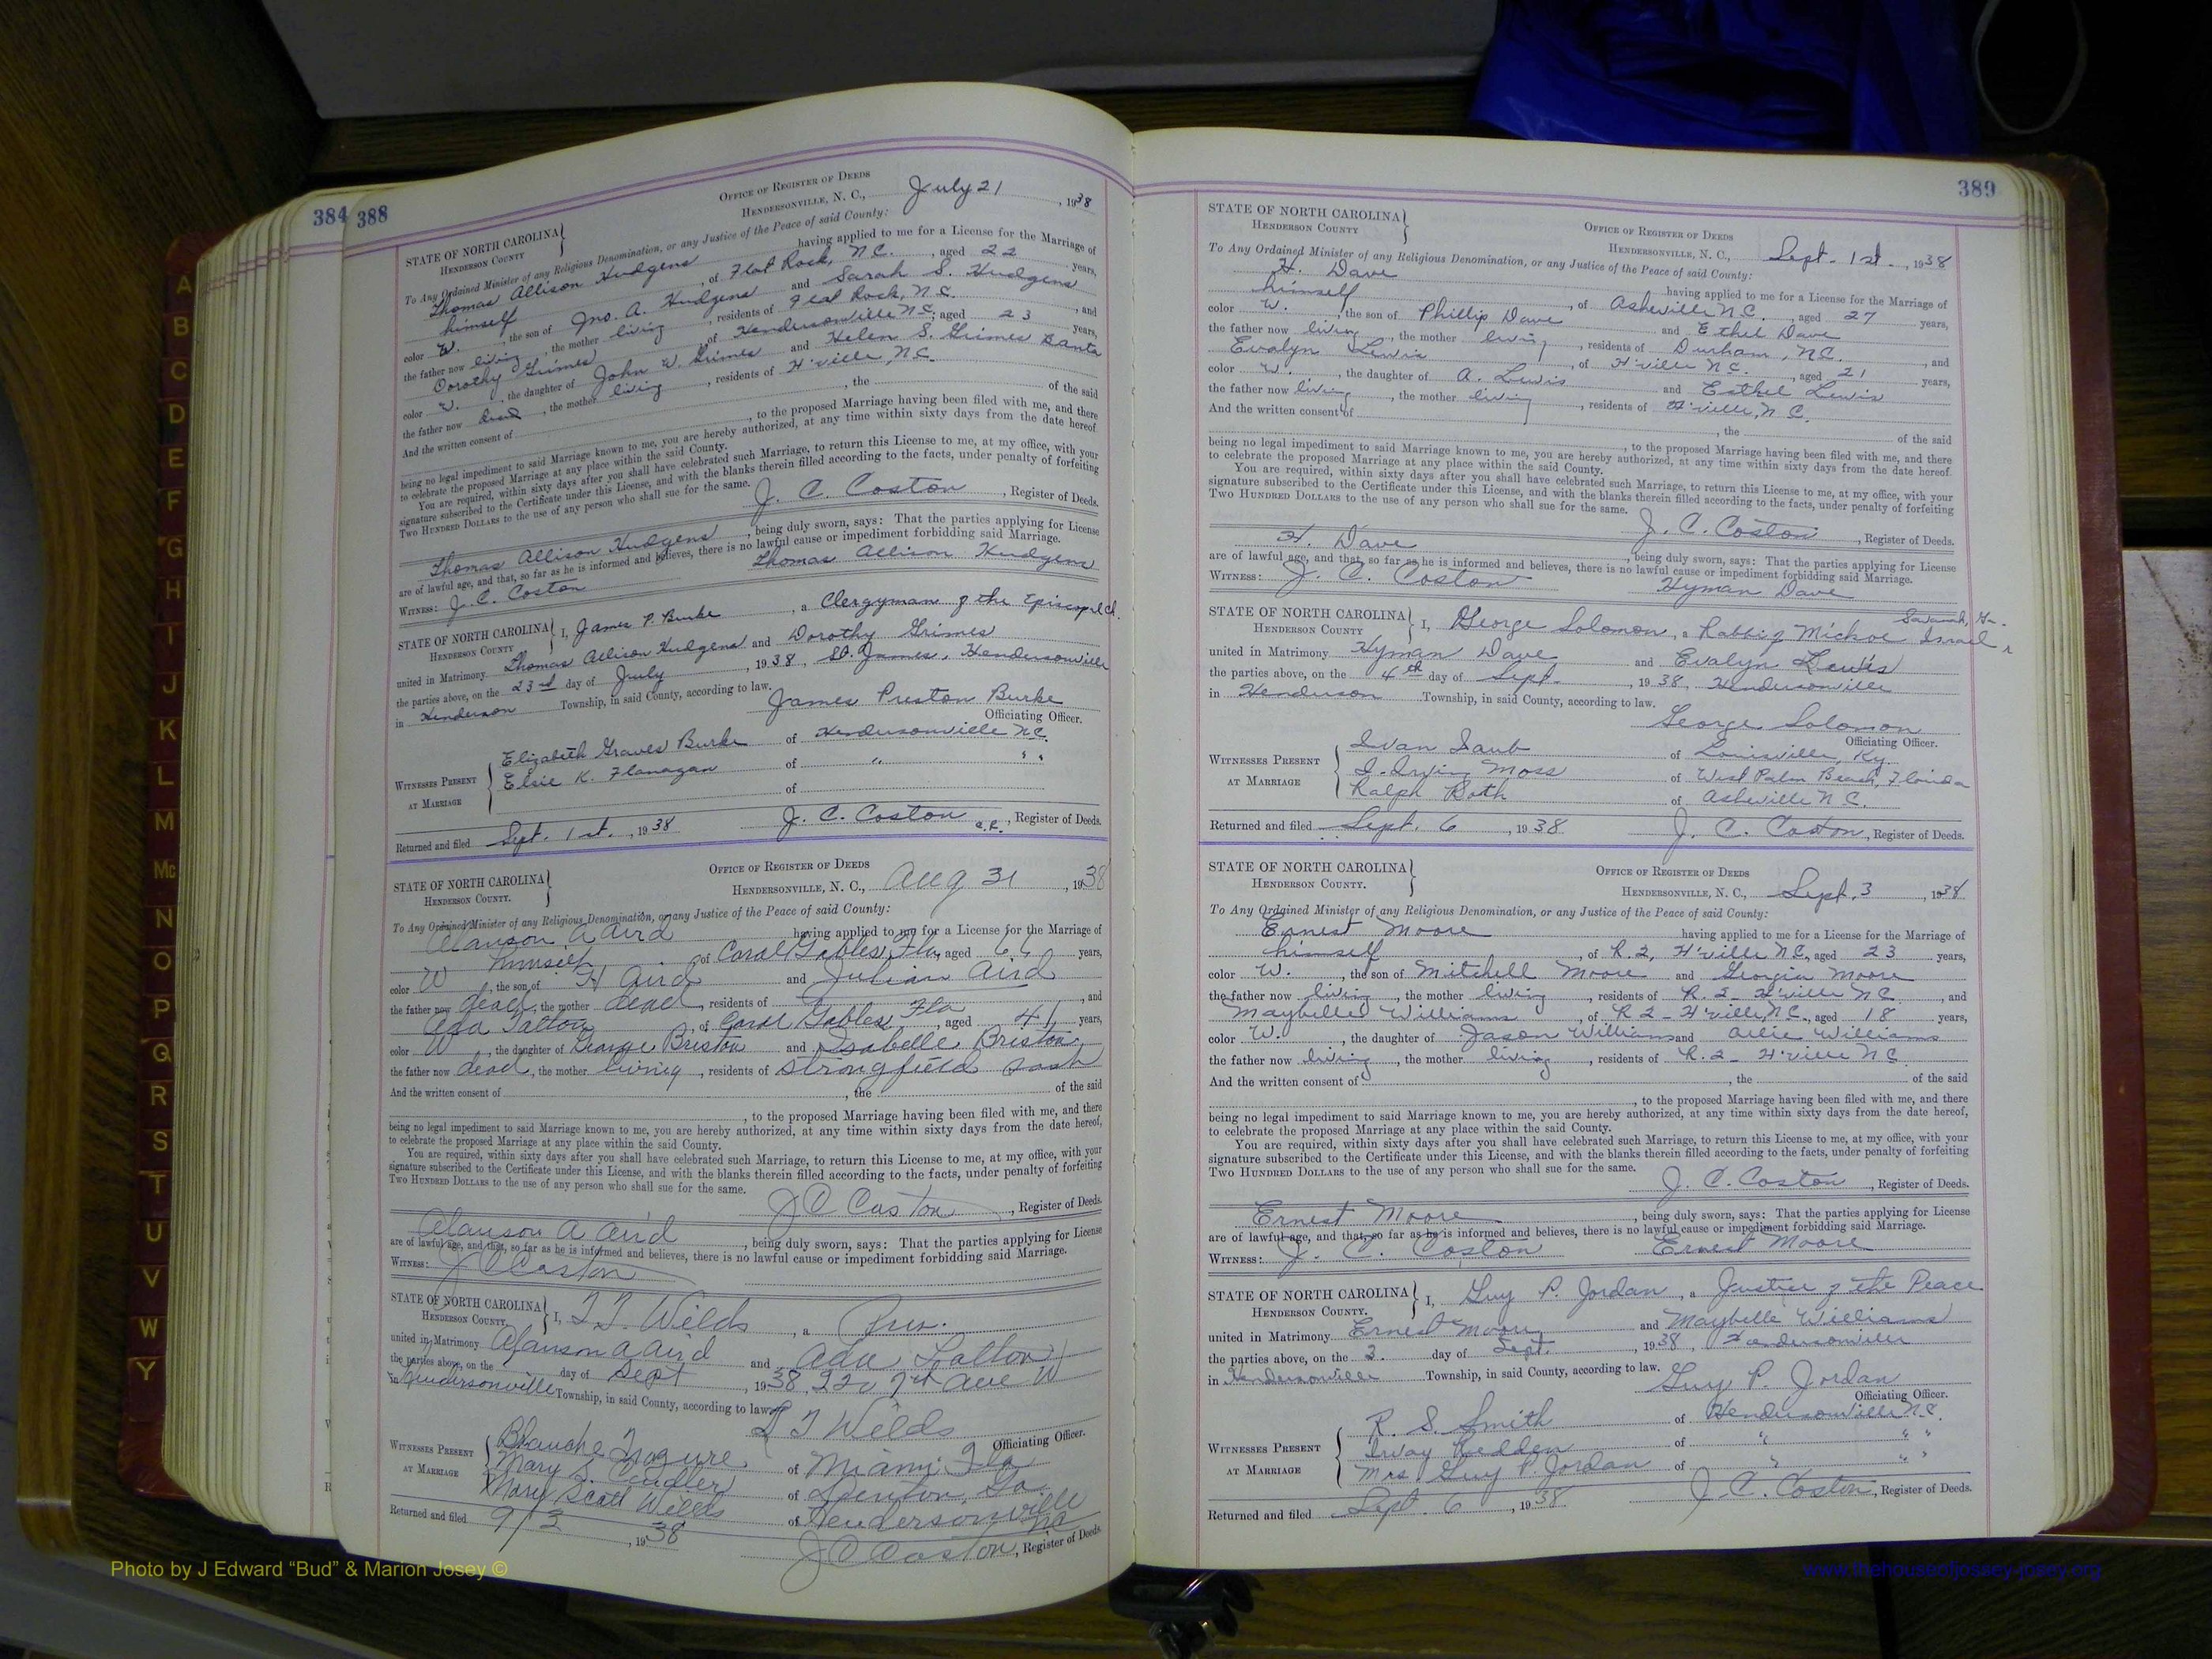 384 388
OFFICE OF REGISTER OF DEEDS
HENDERSONVILLE, N. C., July 21, 1938
STATE OF NORTH CAROLINA
HENDERSON COUNTY
To Any Ordained Minister of any Religious Denomination, or any Justice of the Peace of said County:
Thomas Allison Hudgens having applied to me for a License for the Marriage of
himself, of Flat Rock, N.C., aged 22 years,
color W., the son of Jno. A. Hudgens and Sarah S. Hudgens
the father now living, the mother living, residents of Flat Rock, N.C., and
Dorothy Grimes of Hendersonville N.C., aged 23 years,
color W., the daughter of John W. Grimes and Helen S. Grimes
the father now dead, the mother living, residents of H'ville, N.C.
And the written consent of , the of the said
, to the proposed Marriage having been filed with me, and there
being no legal impediment to said Marriage known to me, you are hereby authorized, at any time within sixty days from the date hereof
to celebrate the proposed Marriage at any place within the said County.
You are required, within sixty days after you shall have celebrated such Marriage, to return this License to me, at my office, with your
signature subscribed to the Certificate under this License, and with the blanks therein filled according to the facts, under penalty of forfeiting
TWO HUNDRED DOLLARS to the use of any person who shall sue for the same.
J. C. Coston, Register of Deeds.
Thomas Allison Hudgens, being duly sworn, says: That the parties applying for License
are of lawful age, and that, so far as he is informed and believes, there is no lawful cause or impediment forbidding said Marriage.
WITNESS: J. C. Coston Thomas Allison Hudgens
STATE OF NORTH CAROLINA
HENDERSON COUNTY
I, James P. Burke, a Clergyman of the Episcopal Ch.
united in Matrimony Thomas Allison Hudgens and Dorothy Grimes
the parties above, on the 23rd day of July, 1938, St. James, Hendersonville
in Henderson Township, in said County, according to law.
James Preston Burke
Officiating Officer.
WITNESSES PRESENT
AT MARRIAGE
Elizabeth Graves Burke of Hendersonville N.C.
Elsie K. Flanagan of " " "
of
Returned and filed Sept. 1st., 1938 J. C. Coston, Register of Deeds.
OFFICE OF REGISTER OF DEEDS
HENDERSONVILLE, N. C., Aug 31, 1938
STATE OF NORTH CAROLINA
HENDERSON COUNTY.
To Any Ordained Minister of any Religious Denomination, or any Justice of the Peace of said County:
Alanson A Aird having applied to me for a License for the Marriage of
himself of Coral Gables, Fla, aged years,
color W, the son of H Aird and Julian Aird
the father now dead, the mother dead, residents of , and
Ada of Coral Gables Fla, aged 41 years,
color W, the daughter of George Briston and Isabelle Briston
the father now dead, the mother living, residents of Strongfield Sask
And the written consent of , the of the said
, to the proposed Marriage having been filed with me, and there
being no legal impediment to said Marriage known to me, you are hereby authorized, at any time within sixty days from the date hereof,
to celebrate the proposed Marriage at any place within the said County.
You are required, within sixty days after you shall have celebrated such Marriage, to return this License to me, at my office, with your
signature subscribed to the Certificate under this License, and with the blanks therein filled according to the facts, under penalty of forfeiting
TWO HUNDRED DOLLARS to the use of any person who shall sue for the same.
J C Coston, Register of Deeds.
Alanson A Aird, being duly sworn, says: That the parties applying for License
are of lawful age, and that, so far as he is informed and believes, there is no lawful cause or impediment forbidding said Marriage.
WITNESS: J C Coston
STATE OF NORTH CAROLINA
HENDERSON COUNTY.
I, Wilds, a
united in Matrimony Alanson A Aird and Ada
the parties above, on the day of Sept, 1938, 220 7th Ave W
in Hendersonville Township, in said County, according to law.
Wilds
Officiating Officer.
WITNESSES PRESENT
AT MARRIAGE
Blanche of Miami Fla
Mary S. Candler of Ga
Mary Scott Wilds of Hendersonville NC
Returned and filed 9/3, 1938 J C Coston, Register of Deeds.
389
STATE OF NORTH CAROLINA
HENDERSON COUNTY
OFFICE OF REGISTER OF DEEDS
HENDERSONVILLE, N. C., Sept. 1st., 1938
To Any Ordained Minister of any Religious Denomination, or any Justice of the Peace of said County:
H. Dave having applied to me for a License for the Marriage of
himself, of Asheville N.C., aged 27 years,
color W., the son of Phillip Dave and Ethel Dave
the father now living, the mother living, residents of Durham, N.C., and
Evalyn Lewis, of H'ville N.C., aged 21 years,
color W., the daughter of A. Lewis and Esthel Lewis
the father now living, the mother living, residents of H'ville, N.C.
And the written consent of
, the of the said
, to the proposed Marriage having been filed with me, and there
being no legal impediment to said Marriage known to me, you are hereby authorized, at any time within sixty days from the date hereof
to celebrate the proposed Marriage at any place within the said County.
You are required, within sixty days after you shall have celebrated such Marriage, to return this License to me, at my office, with your
signature subscribed to the Certificate under this License, and with the blanks therein filled according to the facts, under penalty of forfeiting
TWO HUNDRED DOLLARS to the use of any person who shall sue for the same.
J. C. Coston, Register of Deeds.
H. Dave, being duly sworn, says: That the parties applying for License
are of lawful age, and that, so far as he is informed and believes, there is no lawful cause or impediment forbidding said Marriage.
WITNESS: J. C. Coston Hyman Dave
STATE OF NORTH CAROLINA
HENDERSON COUNTY
I, George Solomon, a Rabbi of Mickve Israel Savanah, Ga.
united in Matrimony Hyman Dave and Evalyn Lewis
the parties above, on the 4th day of Sept., 1938, Hendersonville
in Henderson Township, in said County, according to law.
George Solomon
Officiating Officer.
WITNESSES PRESENT
AT MARRIAGE
Ivan of Louisville, Ky.
I. Irving Moss of West Palm Beach, Florida
Ralph Roth of Asheville N.C.
Returned and filed Sept. 6, 1938 J. C. Coston, Register of Deeds.
STATE OF NORTH CAROLINA
HENDERSON COUNTY.
OFFICE OF REGISTER OF DEEDS
HENDERSONVILLE, N. C., Sept. 3, 1938
To Any Ordained Minister of any Religious Denomination, or any Justice of the Peace of said County:
Ernest Moore having applied to me for a License for the Marriage of
himself, of R. 2, H'ville N.C., aged 23 years,
color W., the son of Mitchell Moore and Georgia Moore
the father now living, the mother living, residents of R. 2 - H'ville N.C., and
Maybelle Williams, of R 2 - H'ville, N.C., aged 18 years,
color W., the daughter of Jason Williams and Allie Williams
the father now living, the mother living, residents of R. 2 - H'ville N.C.
And the written consent of , the of the said
, to the proposed Marriage having been filed with me, and there
being no legal impediment to said Marriage known to me, you are hereby authorized, at any time within sixty days from the date hereof,
to celebrate the proposed Marriage at any place within the said County.
You are required, within sixty days after you shall have celebrated such Marriage, to return this License to me, at my office, with your
signature subscribed to the Certificate under this License, and with the blanks therein filled according to the facts, under penalty of forfeiting
TWO HUNDRED DOLLARS to the use of any person who shall sue for the same.
J. C. Coston, Register of Deeds.
Ernest Moore, being duly sworn, says: That the parties applying for License
are of lawful age, and that, so far as he is informed and believes, there is no lawful cause or impediment forbidding said Marriage.
WITNESS: J. C. Coston Ernest Moore
STATE OF NORTH CAROLINA
HENDERSON COUNTY.
I, Guy P. Jordan, a Justice of the Peace
united in Matrimony Ernest Moore and Maybelle Williams
the parties above, on the 3. day of Sept., 1938, Hendersonville
in Hendersonville Township, in said County, according to law.
Guy P. Jordan
Officiating Officer.
WITNESSES PRESENT
AT MARRIAGE
R. S. Smith of Hendersonville N.C.
Hedden of " " "
Mrs. Guy P. Jordan of " " "
Returned and filed Sept. 6, 1938 J. C. Coston, Register of Deeds.
A
B
C
D
E
F
G
H
I
J
K
L
M
Mc
N
O
P
Q
R
S
T
U
V
W
Y
Photo by J Edward "Bud" & Marion Josey ©
www.thehouseofjossey-josey.org